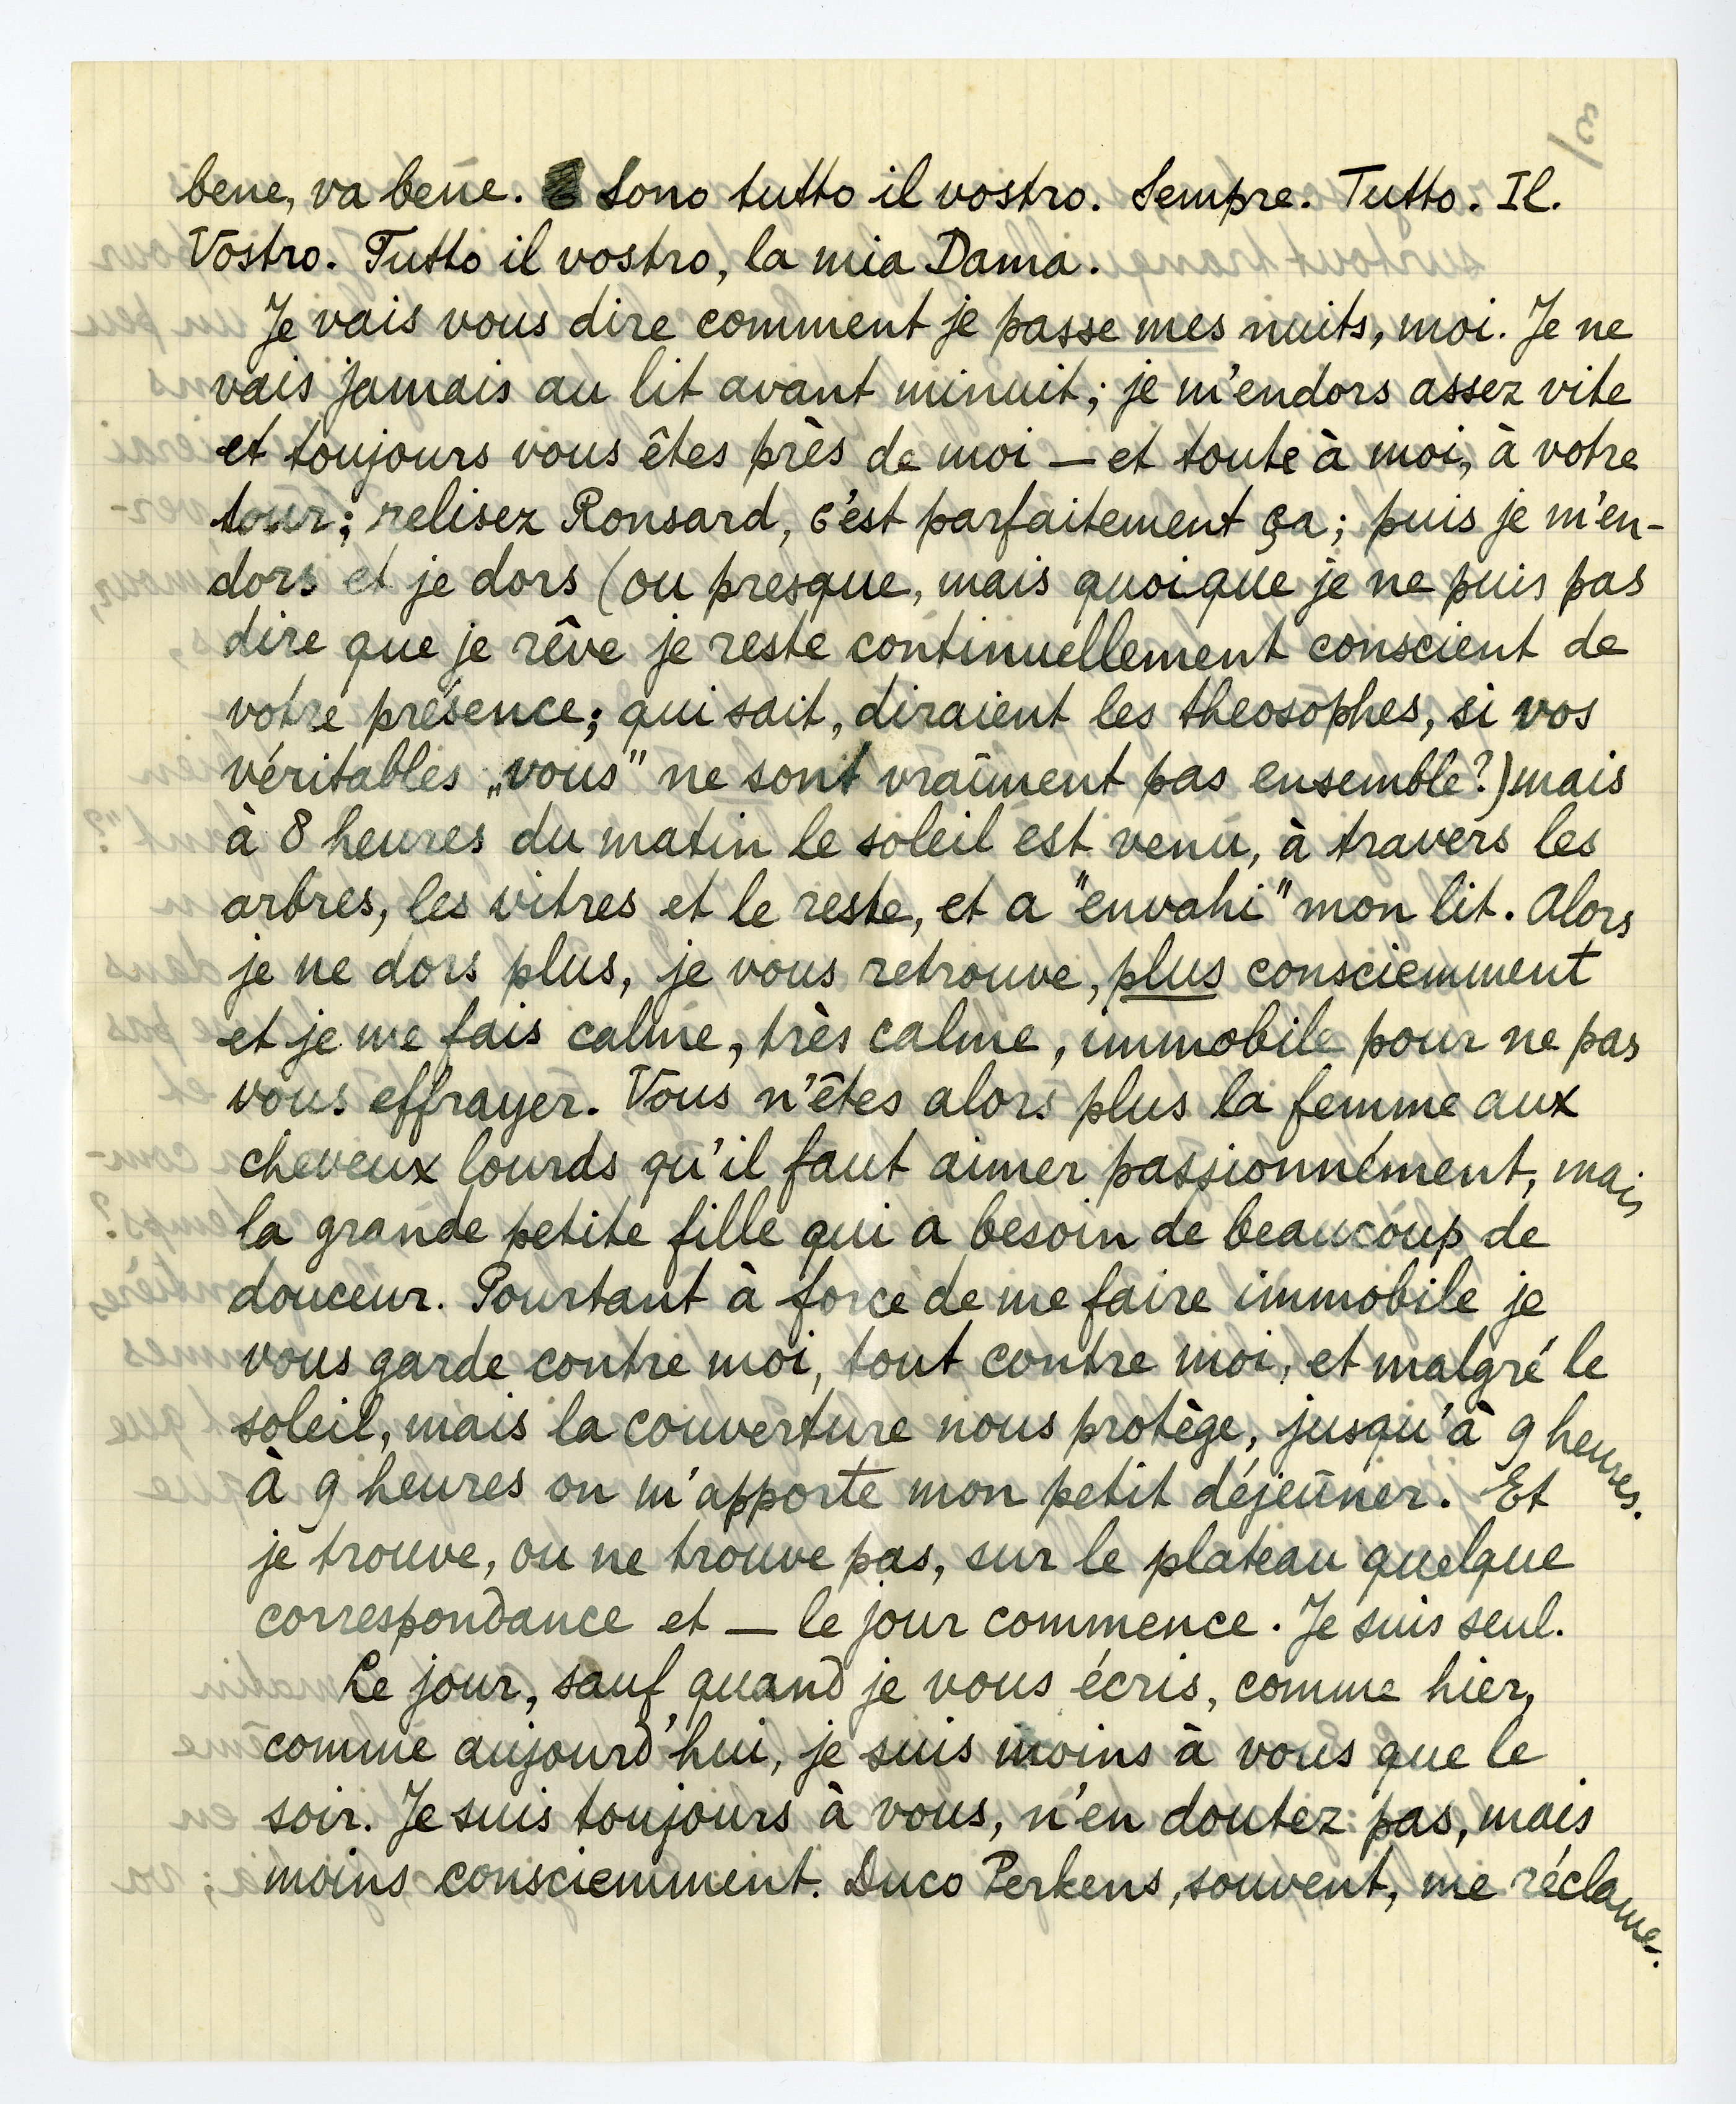 bene, va bene. Sono tutto il vostro. Sempre. Tutto. Il.
Vostro. Tutto il vostro, la mia Dama.
Je vais vous dire comment je passe mes nuits, moi. Je ne
vais jamais au lit avant minuit; je m'endors assez vite
et toujours vous êtes près de moi — et toute à moi, à votre
tour; relisez Ronsard, c'est parfaitement ça; puis je m'en-
dors et je dors (ou presque, mais quoique je ne puis pas
dire que je rêve je reste continuellement conscient de
votre présence; qui sait, diraient les theosophes, si vos
véritables „vous" ne sont vraiment pas ensemble?) mais
à 8 heures du matin le soleil est venu, à travers les
arbres, les vitres et le reste, et a "envahi" mon lit. Alors
je ne dors plus, je vous retrouve, plus consciemment
et je me fais calme, très calme, immobile pour ne pas
vous effrayer. Vous n'êtes alors plus la femme aux
cheveux lourds qu'il faut aimer passionnément, mais
la grande petite fille qui a besoin de beaucoup de
douceur. Pourtant à force de me faire immobile je
vous garde contre moi, tout contre moi, et malgré le
soleil, mais la couverture nous protège, jusqu'à 9 heures.
à 9 heures on m'apporte mon petit déjeûner. Et
je trouve, ou ne trouve pas, sur le plateau quelque
correspondance et — le jour commence. Je suis seul.
Le jour, sauf quand je vous écris, comme hier,
comme aujourd'hui, je suis moins à vous que le
soir. Je suis toujours à vous, n'en doutez pas, mais
moins consciemment. Duco Perkens, souvent, me réclame.